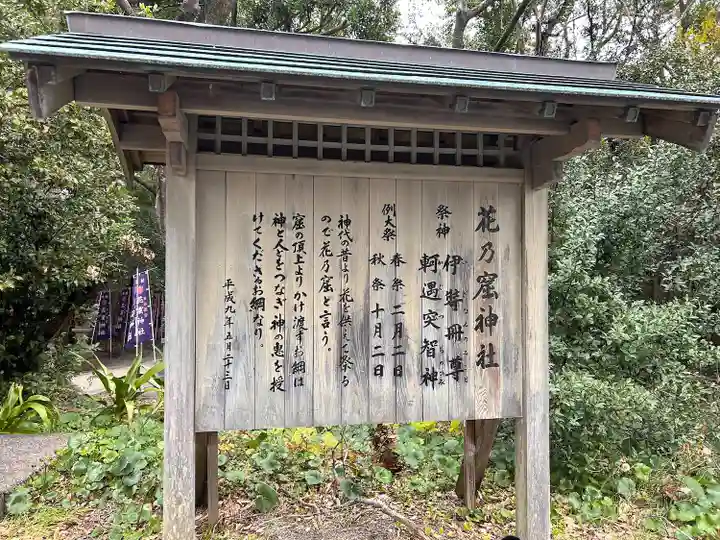 花乃窟神社
祭神 伊弉冊尊
軻遇突智神
例大祭 春祭 二月二日
秋祭 十月二日
神代の昔より花を供えて祭る
ので花乃窟と言う。
窟の頂上よりかけ渡すお綱は
神と人をつなぎ神の恵を授
けてくださるお綱なり。
平成九年五月二十三日